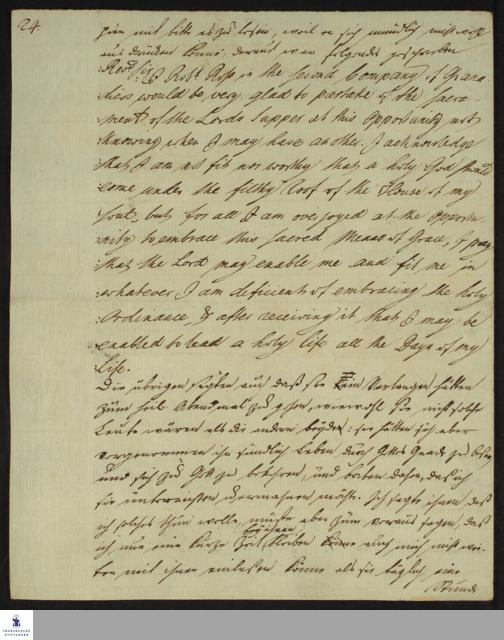 24.
ihm mit bitte es zu lesen, weil er sich mündlich nicht wohl
aus drücken könne, darauf er folgendes geschrieben
Revd Sir I Robt Ross in the second Company of Grana
diers would be very glad to partake of the Sacra-
ment of the Lords Supper at this Opportunity not
Knowing when I may have another. I acknowledge
that I am not fit nor worthy that a holy God should
come under the filthy Roof of the House of my
Soul, but for all I am over joyed at the Opportu-
nity to embrace this sacred Means of Grace, I pray
that the Lord may enable me and fit me in
whatever I am deficient of embracing the holy
Ordinance, & after receiving it that I may be
enabled to lead a holy life all the Days of my
Life.
Die übrigen sagten auch daß sie ein Verlangen hätten
zum heil. Abendmal zu gehen, wiewohl sie nicht solche
Leute wären als die andern beyden: sie hätten sich aber
vorgenommen ihr sündlich Leben durch Gottes Gnade zu
und sich zu Gott zu bekehren, und baten daher, daß ich
sie unterrichten u. ermahnen möchte. Ich sagte ihnen, daß
ich solches thun wolle, müßte aber zum voraus sagen, daß
ich nur eine kurze Zeit bleiben auch mich nicht wei-
ter mit ihnen einlaßen könne als sie täglich eine
Stunde
FRANCKESCHE
STIFTUNGEN